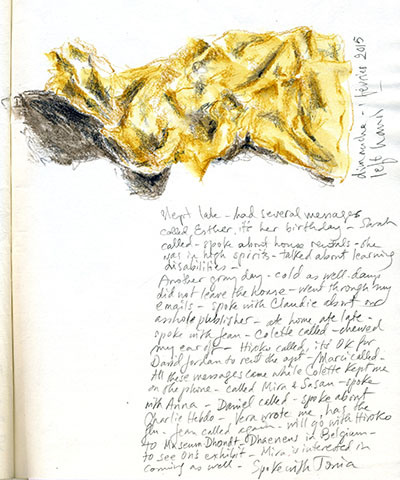 dimanche - 1 février 2015
left hand
Slept late - had several messages
called Esther, it's her birthday - Sarah
called - spoke about house rentals - she
was in high spirits - talked about learning
disabilities -
Another gray day - cold as well - days
did not leave the house - went through my
emails - spoke with Claudie about our
asshole publisher - ate home, ate late -
spoke with Jean - Colette called - chewed
my ear off - Hiroko called, it's OK for
David Jordan to rent the apt - Marci called -
All these messages came while Colette kept me
on the phone - called Mira & Susan - spoke
with Anna - Daniel called - spoke about
Charlie Hebdo - Vera wrote me, has the
flu - Jean called again - will go with Hiroko
to Museum Dhondt-Dhaenens in Belgium -
to see On's exhibit - Mira is interested in
coming as well - Spoke with Tonia